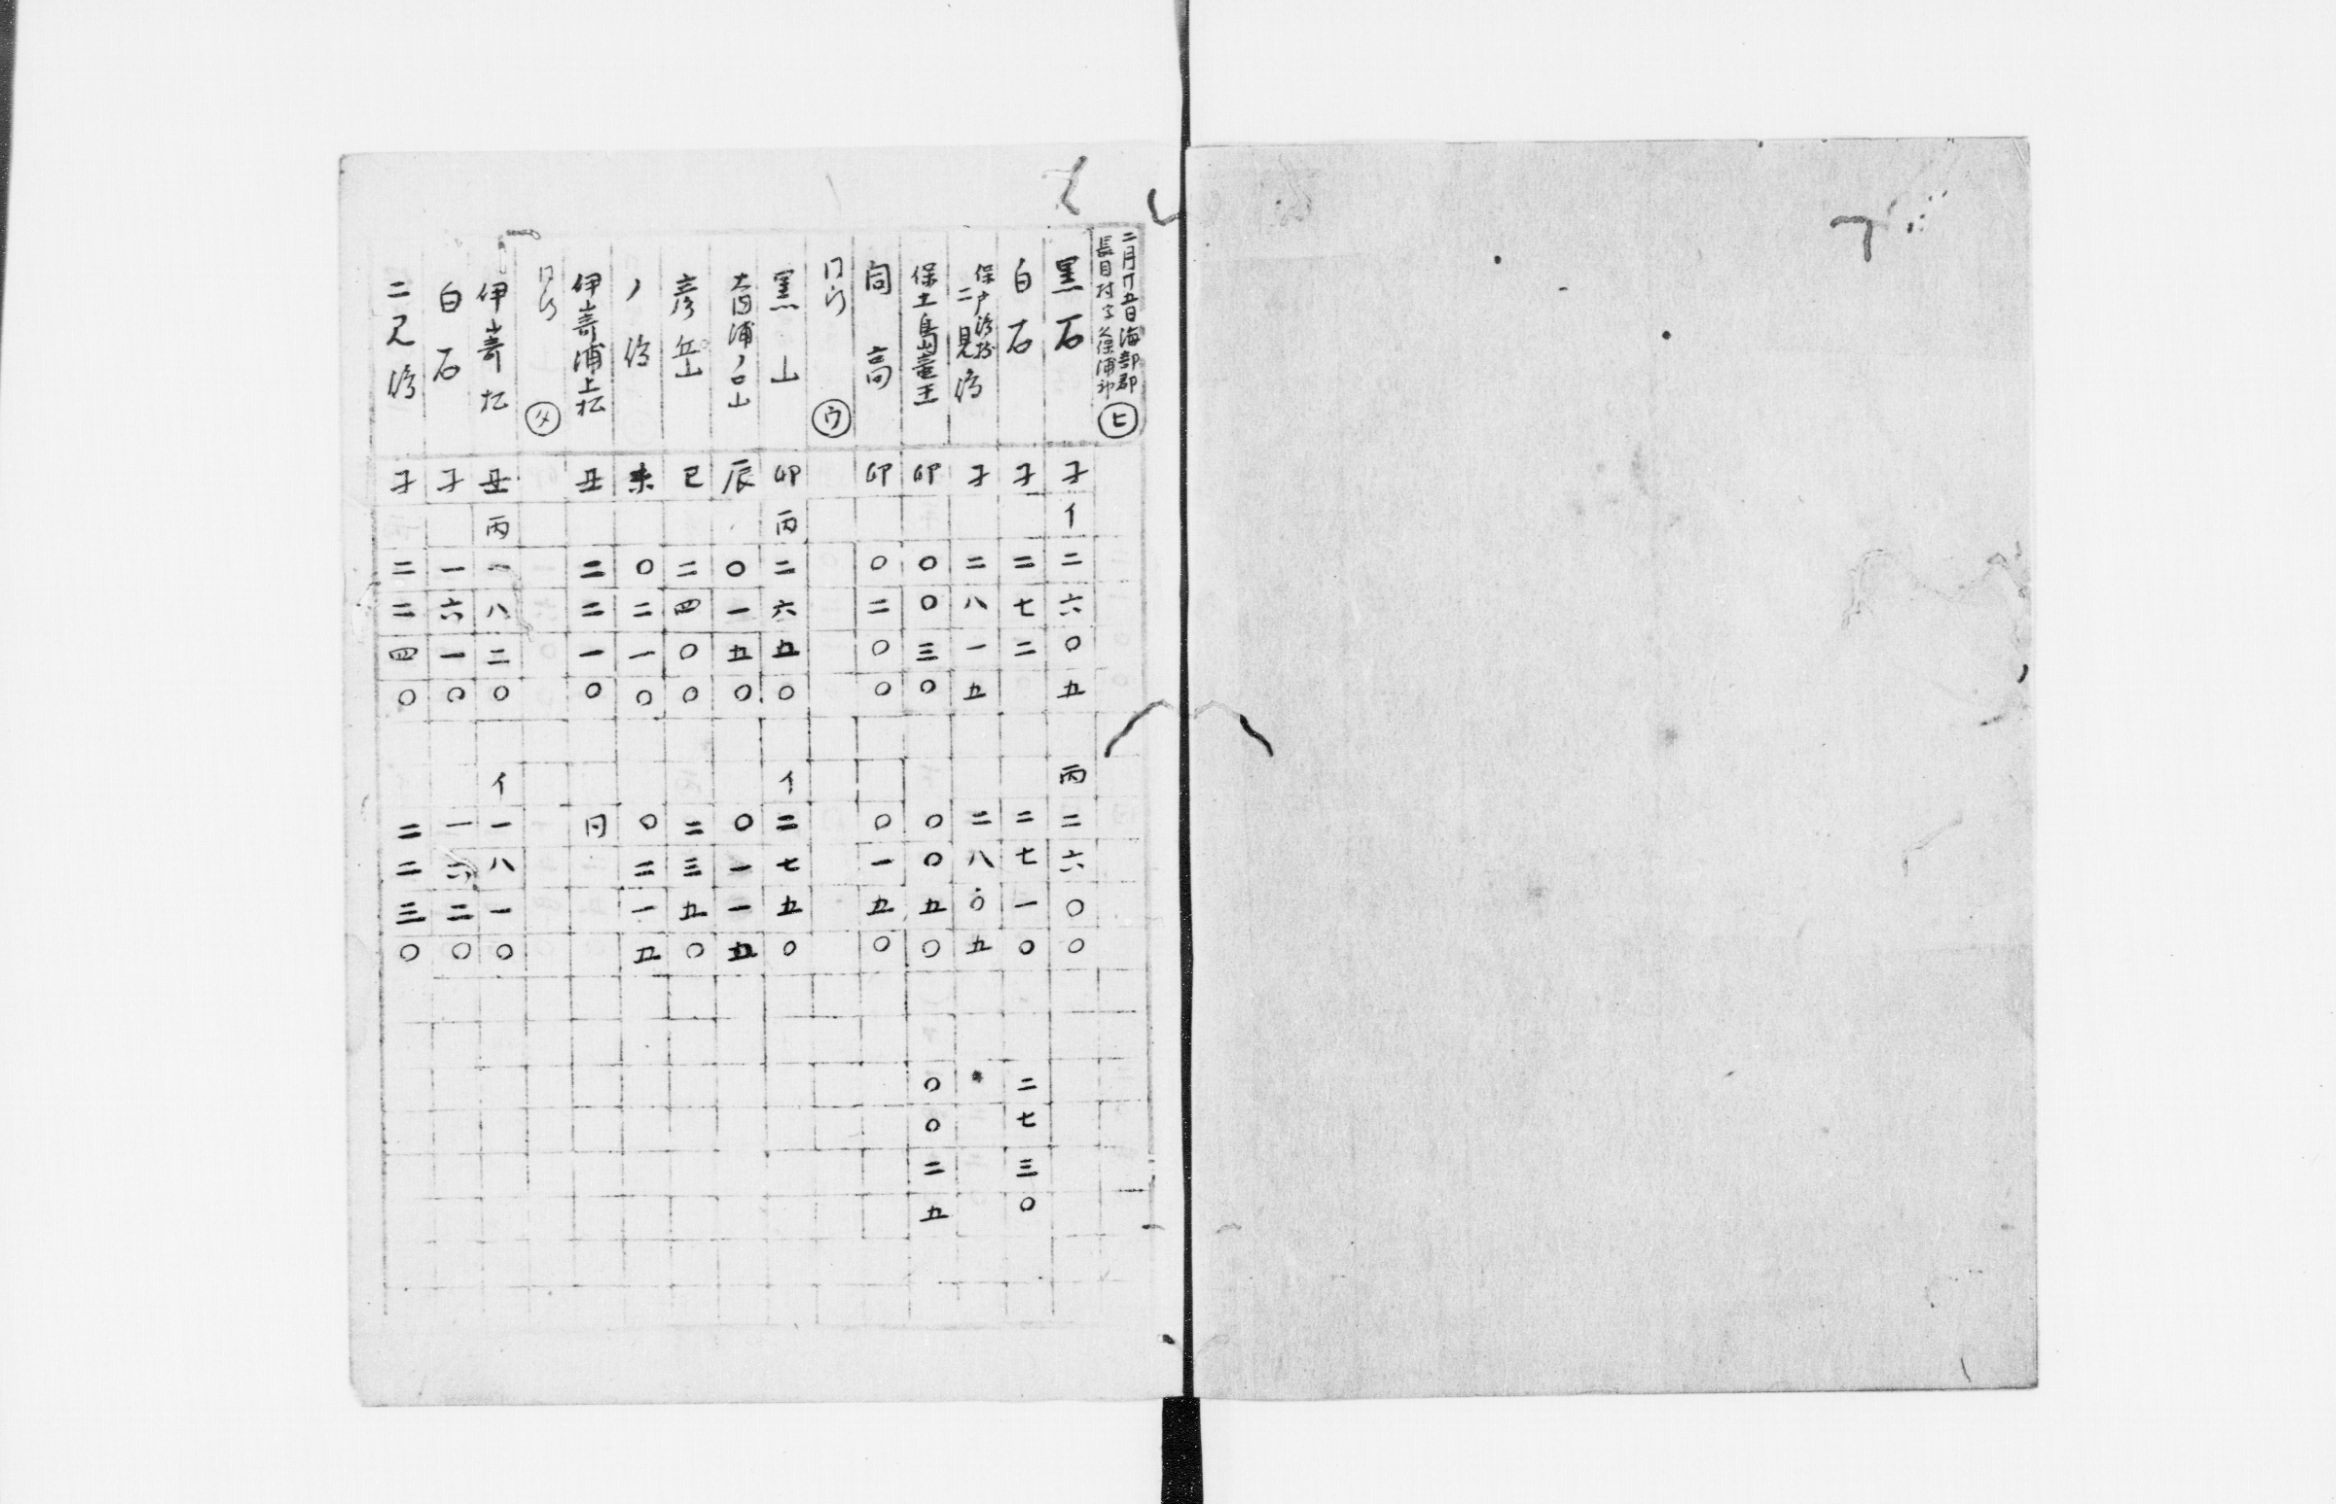 二月廿五日海部郡
長目村字久保浦 ヒ
黒石 子 イ 二六〇五 丙 二六〇〇
白石 子 二七二 二七一〇 二七三〇
保戸 二見 子 二八一五 二八〇五
保土島竜王 卯 〇〇三〇 〇〇五〇 〇〇二五
同高 卯 〇二〇〇 〇一五〇
ウ
黒山 卯 丙 二六五〇 イ 二七五〇
浦ノ口山 辰 〇一五〇 〇一一五
彦岳山 巳 二四〇〇 二三五〇
未 〇二一〇 〇二一五
伊嵜浦上松 丑 二二一〇 同
メ
伊嵜松 丑 丙 一八二〇 イ 一八一〇
白石 子 一六一〇 一六二〇
二見 子 二二四〇 二二三〇